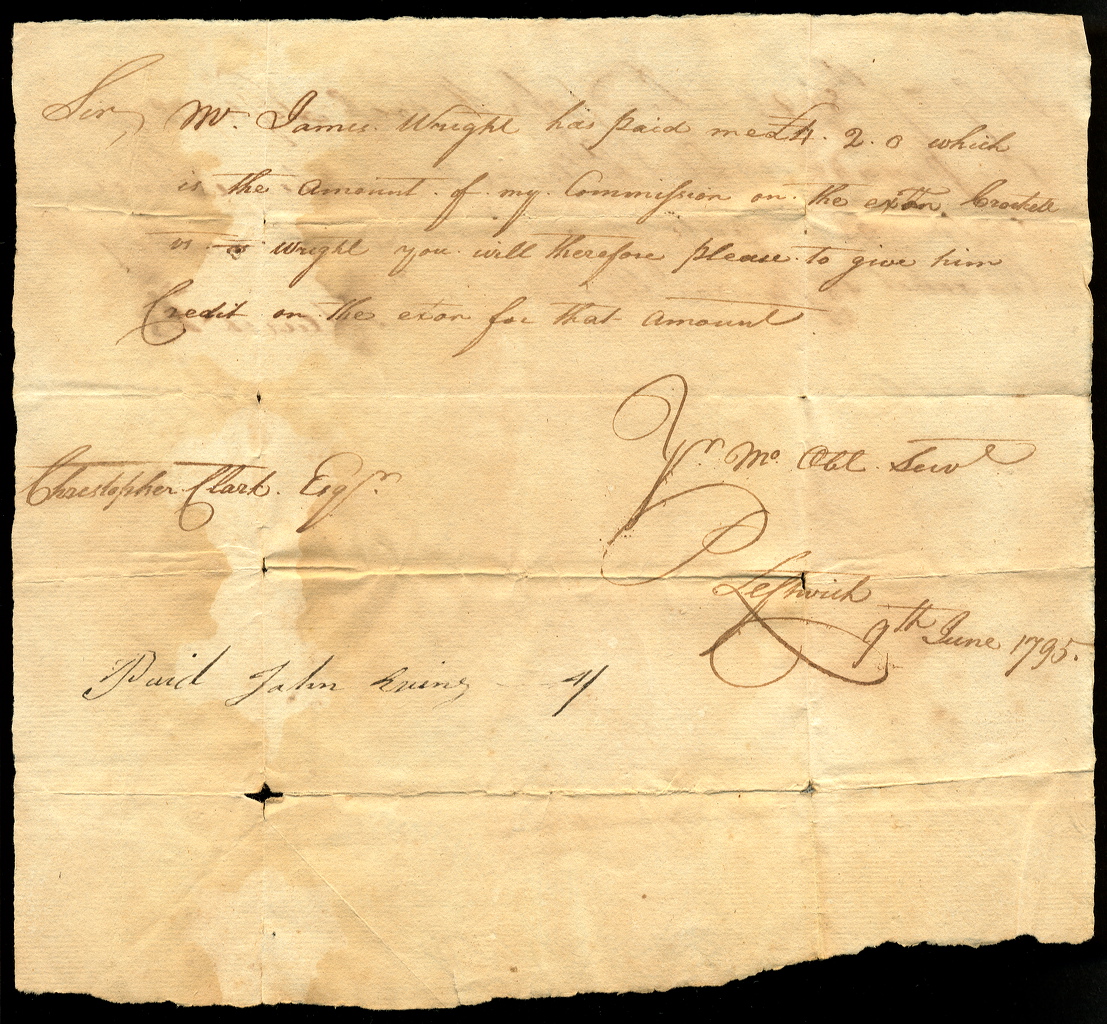 Sir, Mr. James Wright has paid me £4. 2. 0 which
is the amount of my Commission on the exon. Crockett
vs Wright you will therefore please to give him
Credit on the exon for that amount
Yr. Mo Obt. Servt
Christopher Clark. Esqr.
Leftwich
9th June 1795.
Paid John Ewing 4/